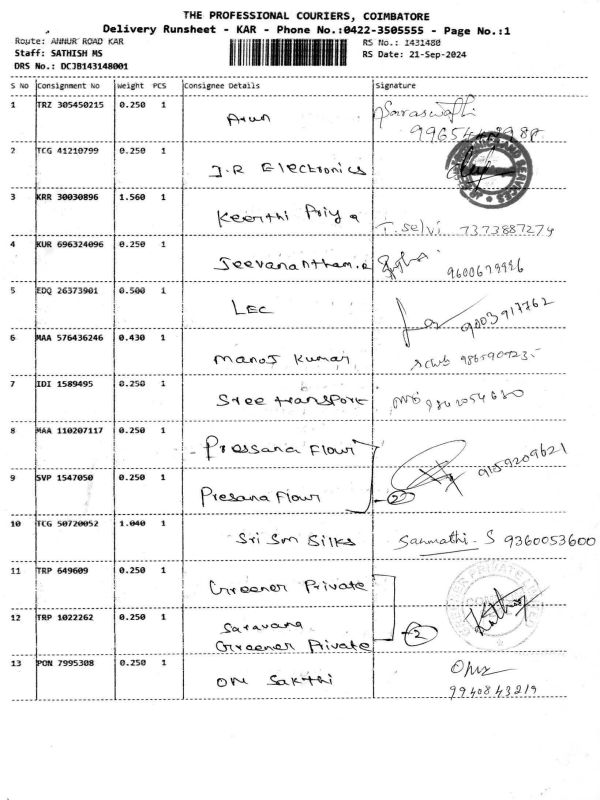 THE PROFESSIONAL COURIERS, COIMBATORE
Delivery Runsheet - KAR - Phone No.:0422-3505555 - Page No.:1
Route: ANNUR ROAD KAR RS No.: 1431480
Staff: SATHISH MS RS Date: 21-Sep-2024
DRS No.: DCJB143148001
S No Consignment No Weight PCS Consignee Details Signature
1 TRZ 305450215 0.250 1 Arun Saraswathi
2 TCG 41210799 0.250 1 J.R Electronics
3 KRR 30030896 1.560 1 Keerthi Priya T. Selvi 7373887274
4 KUR 696324096 0.250 1 Jeevanantham.
9600679926
5 EDQ 26373901 0.500 1 LEC 9003917762
6 MAA 576436246 0.430 1 Manoj Kumar
7 IDI 1589495 0.250 1 Sree transport
8 MAA 110207117 0.250 1 Pressana Flour 9159209621
9 SVP 1547050 0.250 1 Presana Flour 2
10 TCG 50720052 1.040 1 Sri Sm Silks Sanmathi - S 9360053600
11 TRP 649609 0.250 1 Greener Private
12 TRP 1022262 0.250 1 Saravana 2
Greener Private
13 PON 7995308 0.250 1 Om Sakthi
9940843219